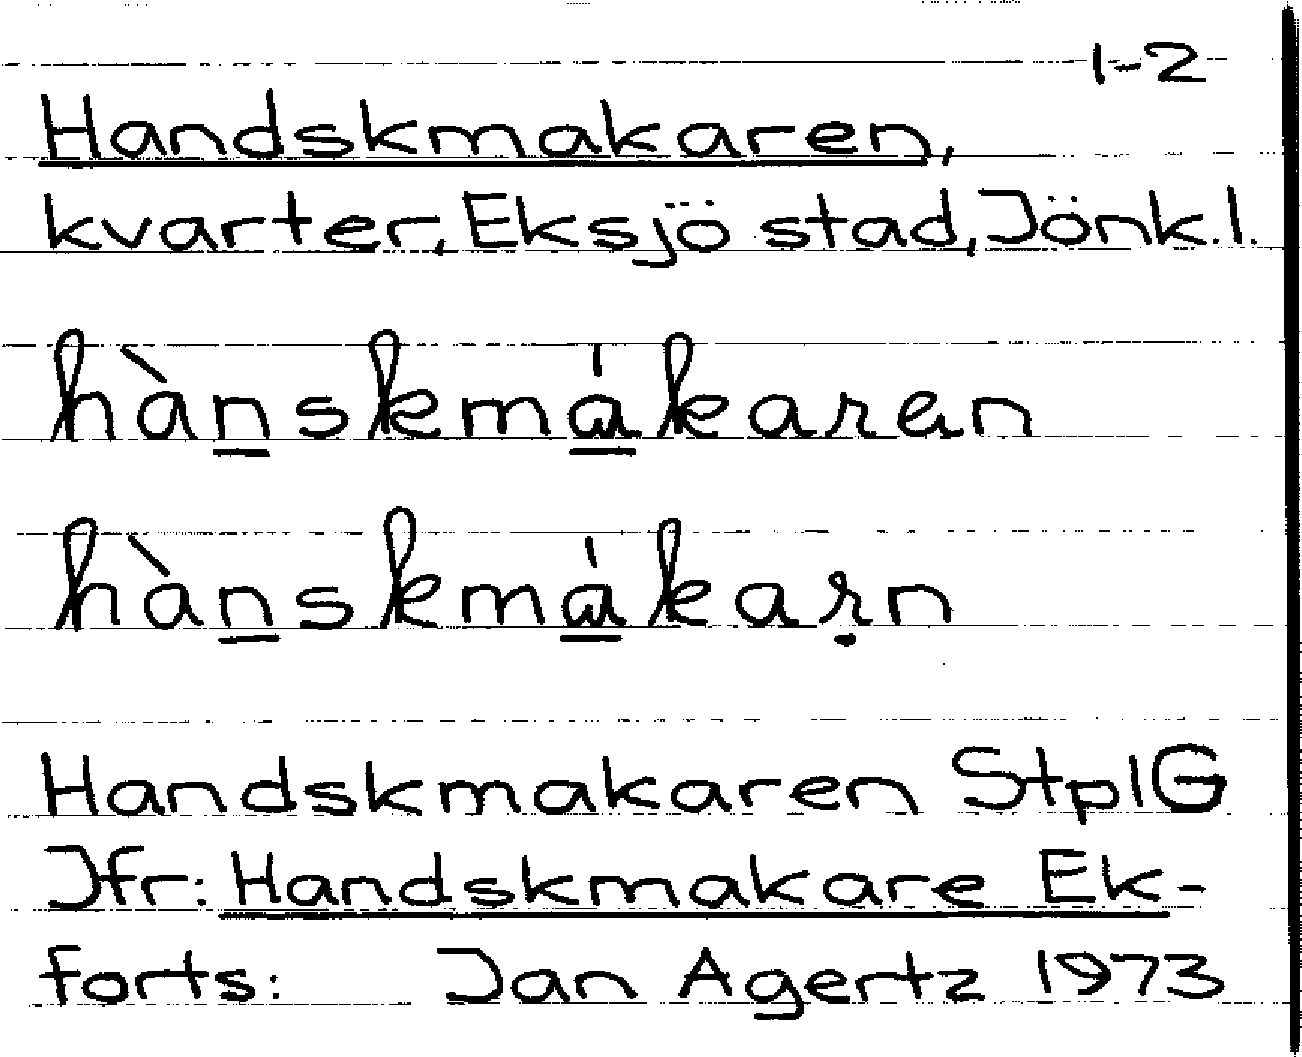 1-2
Handskmakaren,
kvarter, Eksjö stad, Jönk.l.
hànskmɑ́karen
hànskmɑ́kaṛn
Handskmakaren StplG
Jfr: Handskmakare Ek-
forts: Jan Agertz 1973